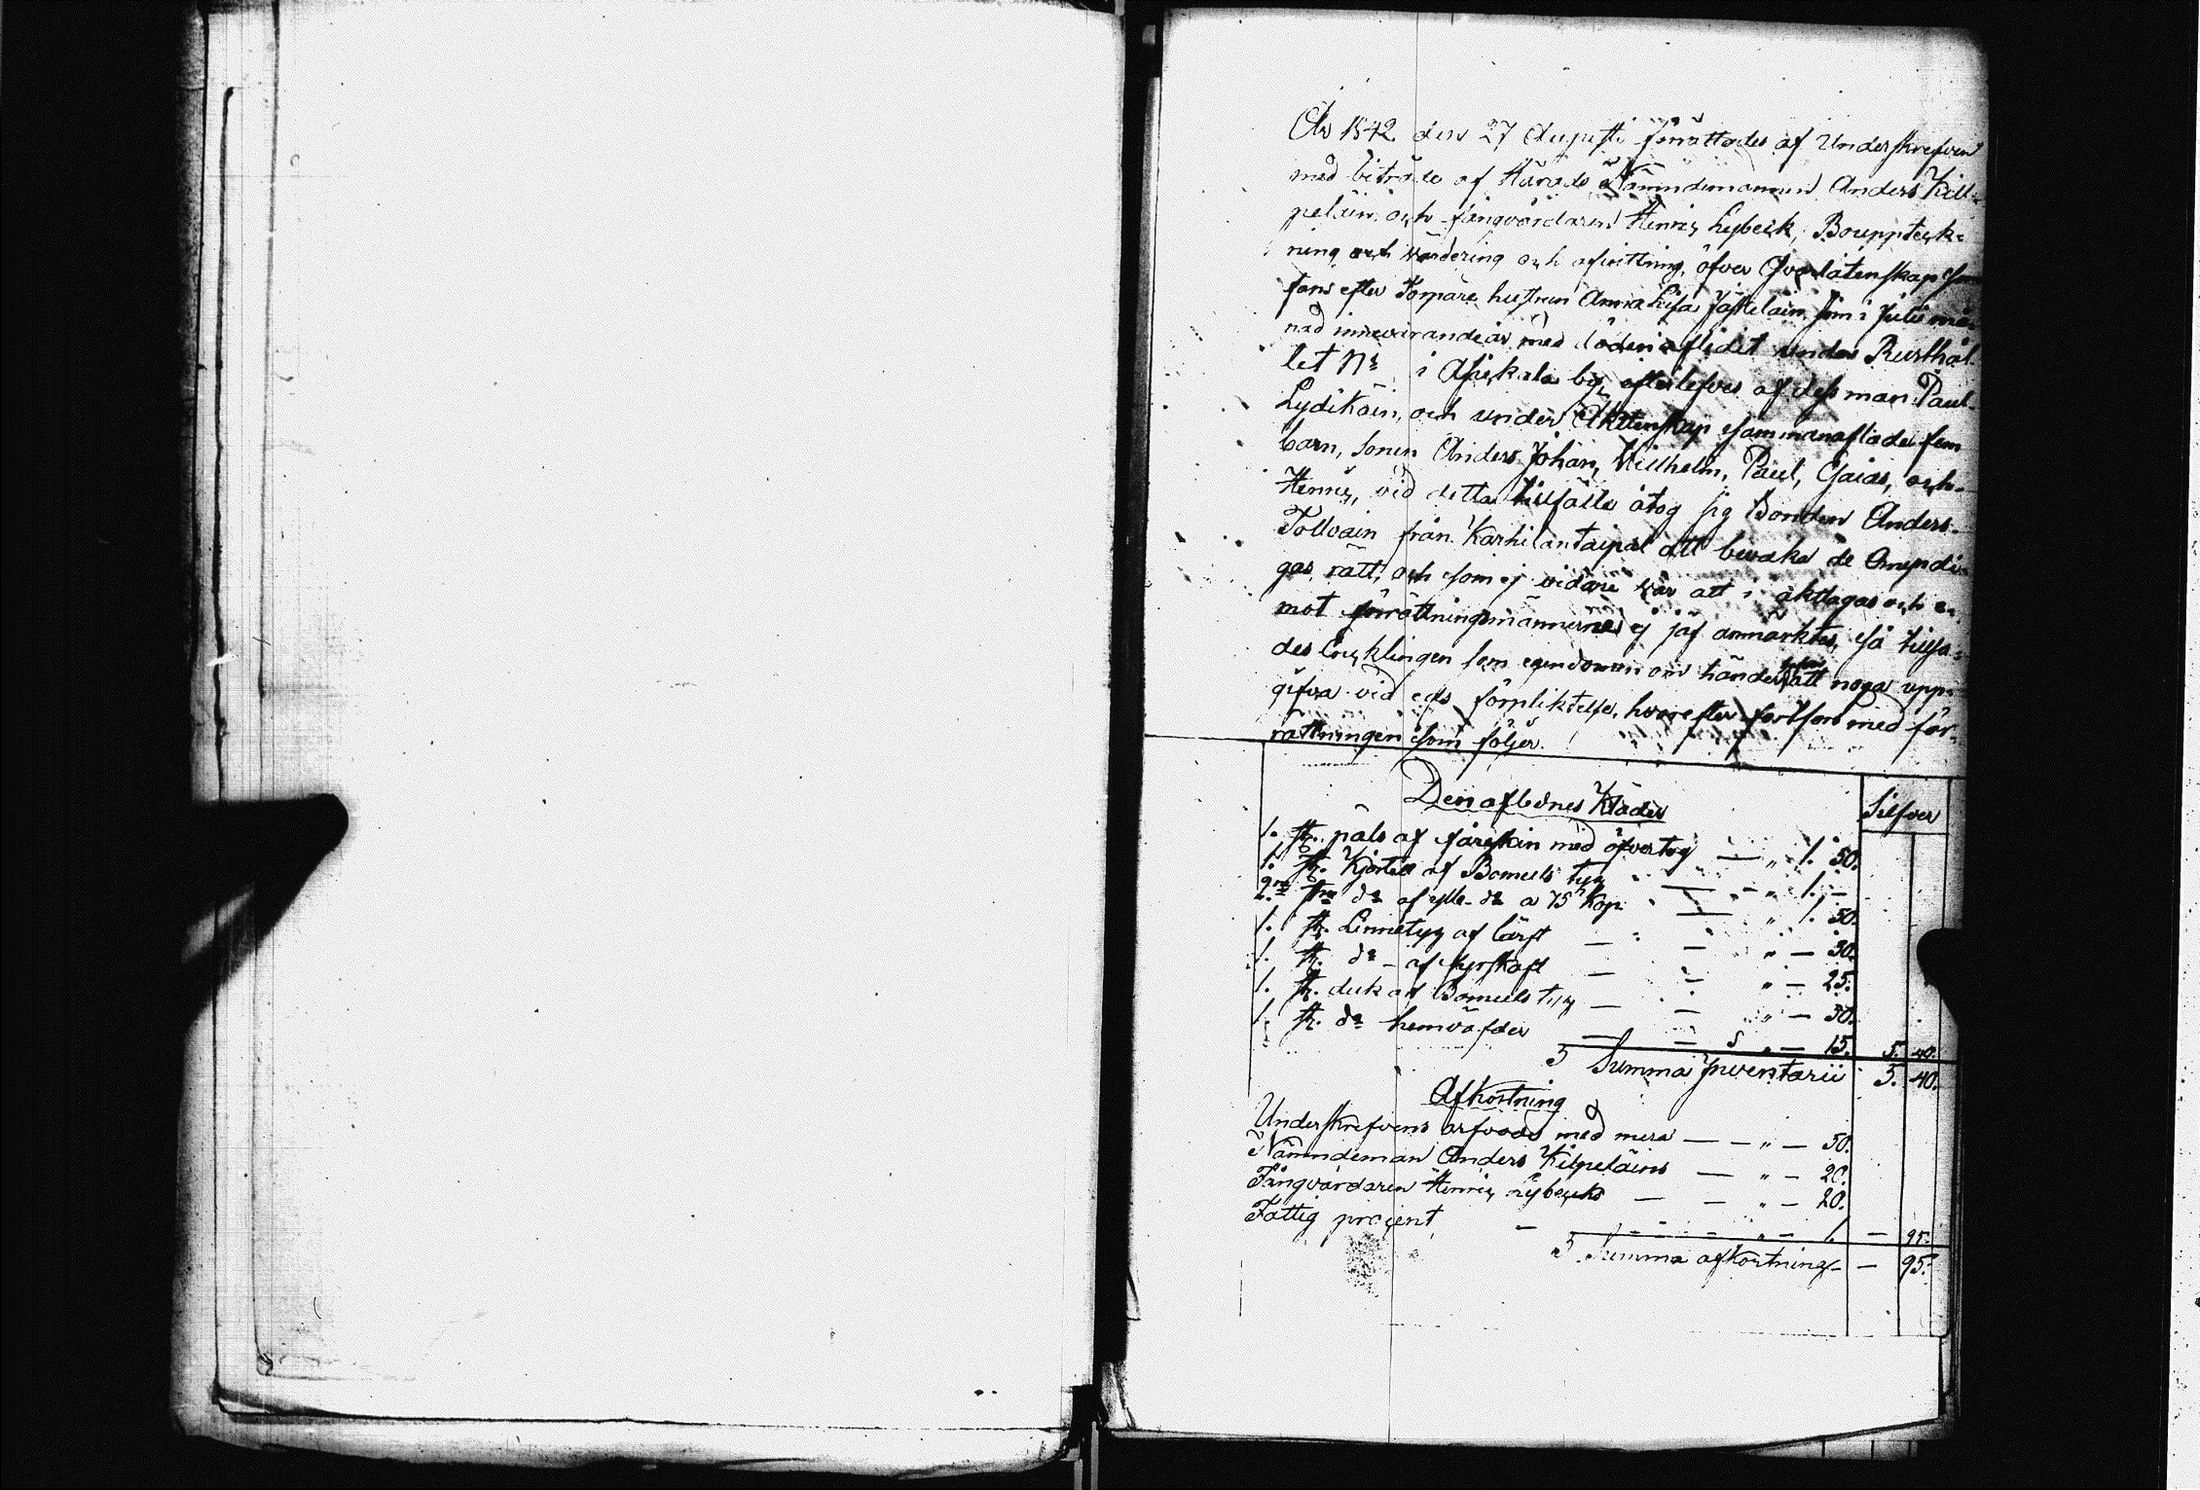 År 1842 den 27 Augusti förrättades af Underskrefven
med biträde af Härads Nämndemannen Anders Kill-
peläin och fångvårdaren Henric Lybeck, Bouppteck-
ning och värdering och afvittring, öfver qvarlåtenskap som
fans efter Torpare hustrun Anna Lisa Jäskeläin som i Julii må-
nad innevarande år med döden aflidit under Rusthål-
let No i by, efterlefves af dess man Paul
Lydikäin, och under Äktenskap sammanaflade fem
barn, sonen Anders Johan, Willhelm, Paul, Esaias, och
Henric, vid detta tillfälle åtog sig Bonden Anders
Tollvain från Karhilantaipal att bevaka de Omyndi-
gas rätt, och som ej vidare var att i akttagas och e-
mot förrättningsmännerne ej jäf anmärktes, så tillsa-
des Encklingen som egendomen om händer hafver att noga upp-
gifva vid eds förpliktelse, hvarefter fortfors med för-
rättningen som följer.
Den aflednes Kläder Silfver
1. st. päls af fårskin med öfvertyg — " 1. 50.
1. st. Kjortel af Bomuls tyg — " 1. —
2ne st. do af ylle do a 75 kop. — " 1. 50.
1. st. Linnetyg af lärft — — " — 30.
1. st. do af fyrskaft — — " — 25.
1. st. duk af Bomuls tyg — — " — 30.
1. st. do hemväfder — — " — 15. 5. 40.
S Summa Inventarii 5. 40.
Afkortning
Underskrefvens arfvode med mera — — " — 50.
Nämndeman Anders Kilpeläins — " — 20.
Fångvårdaren Henric Lybecks — — " — 20.
Fattig procent — — — — " — — 95.
S Summa afkortning — — 95.